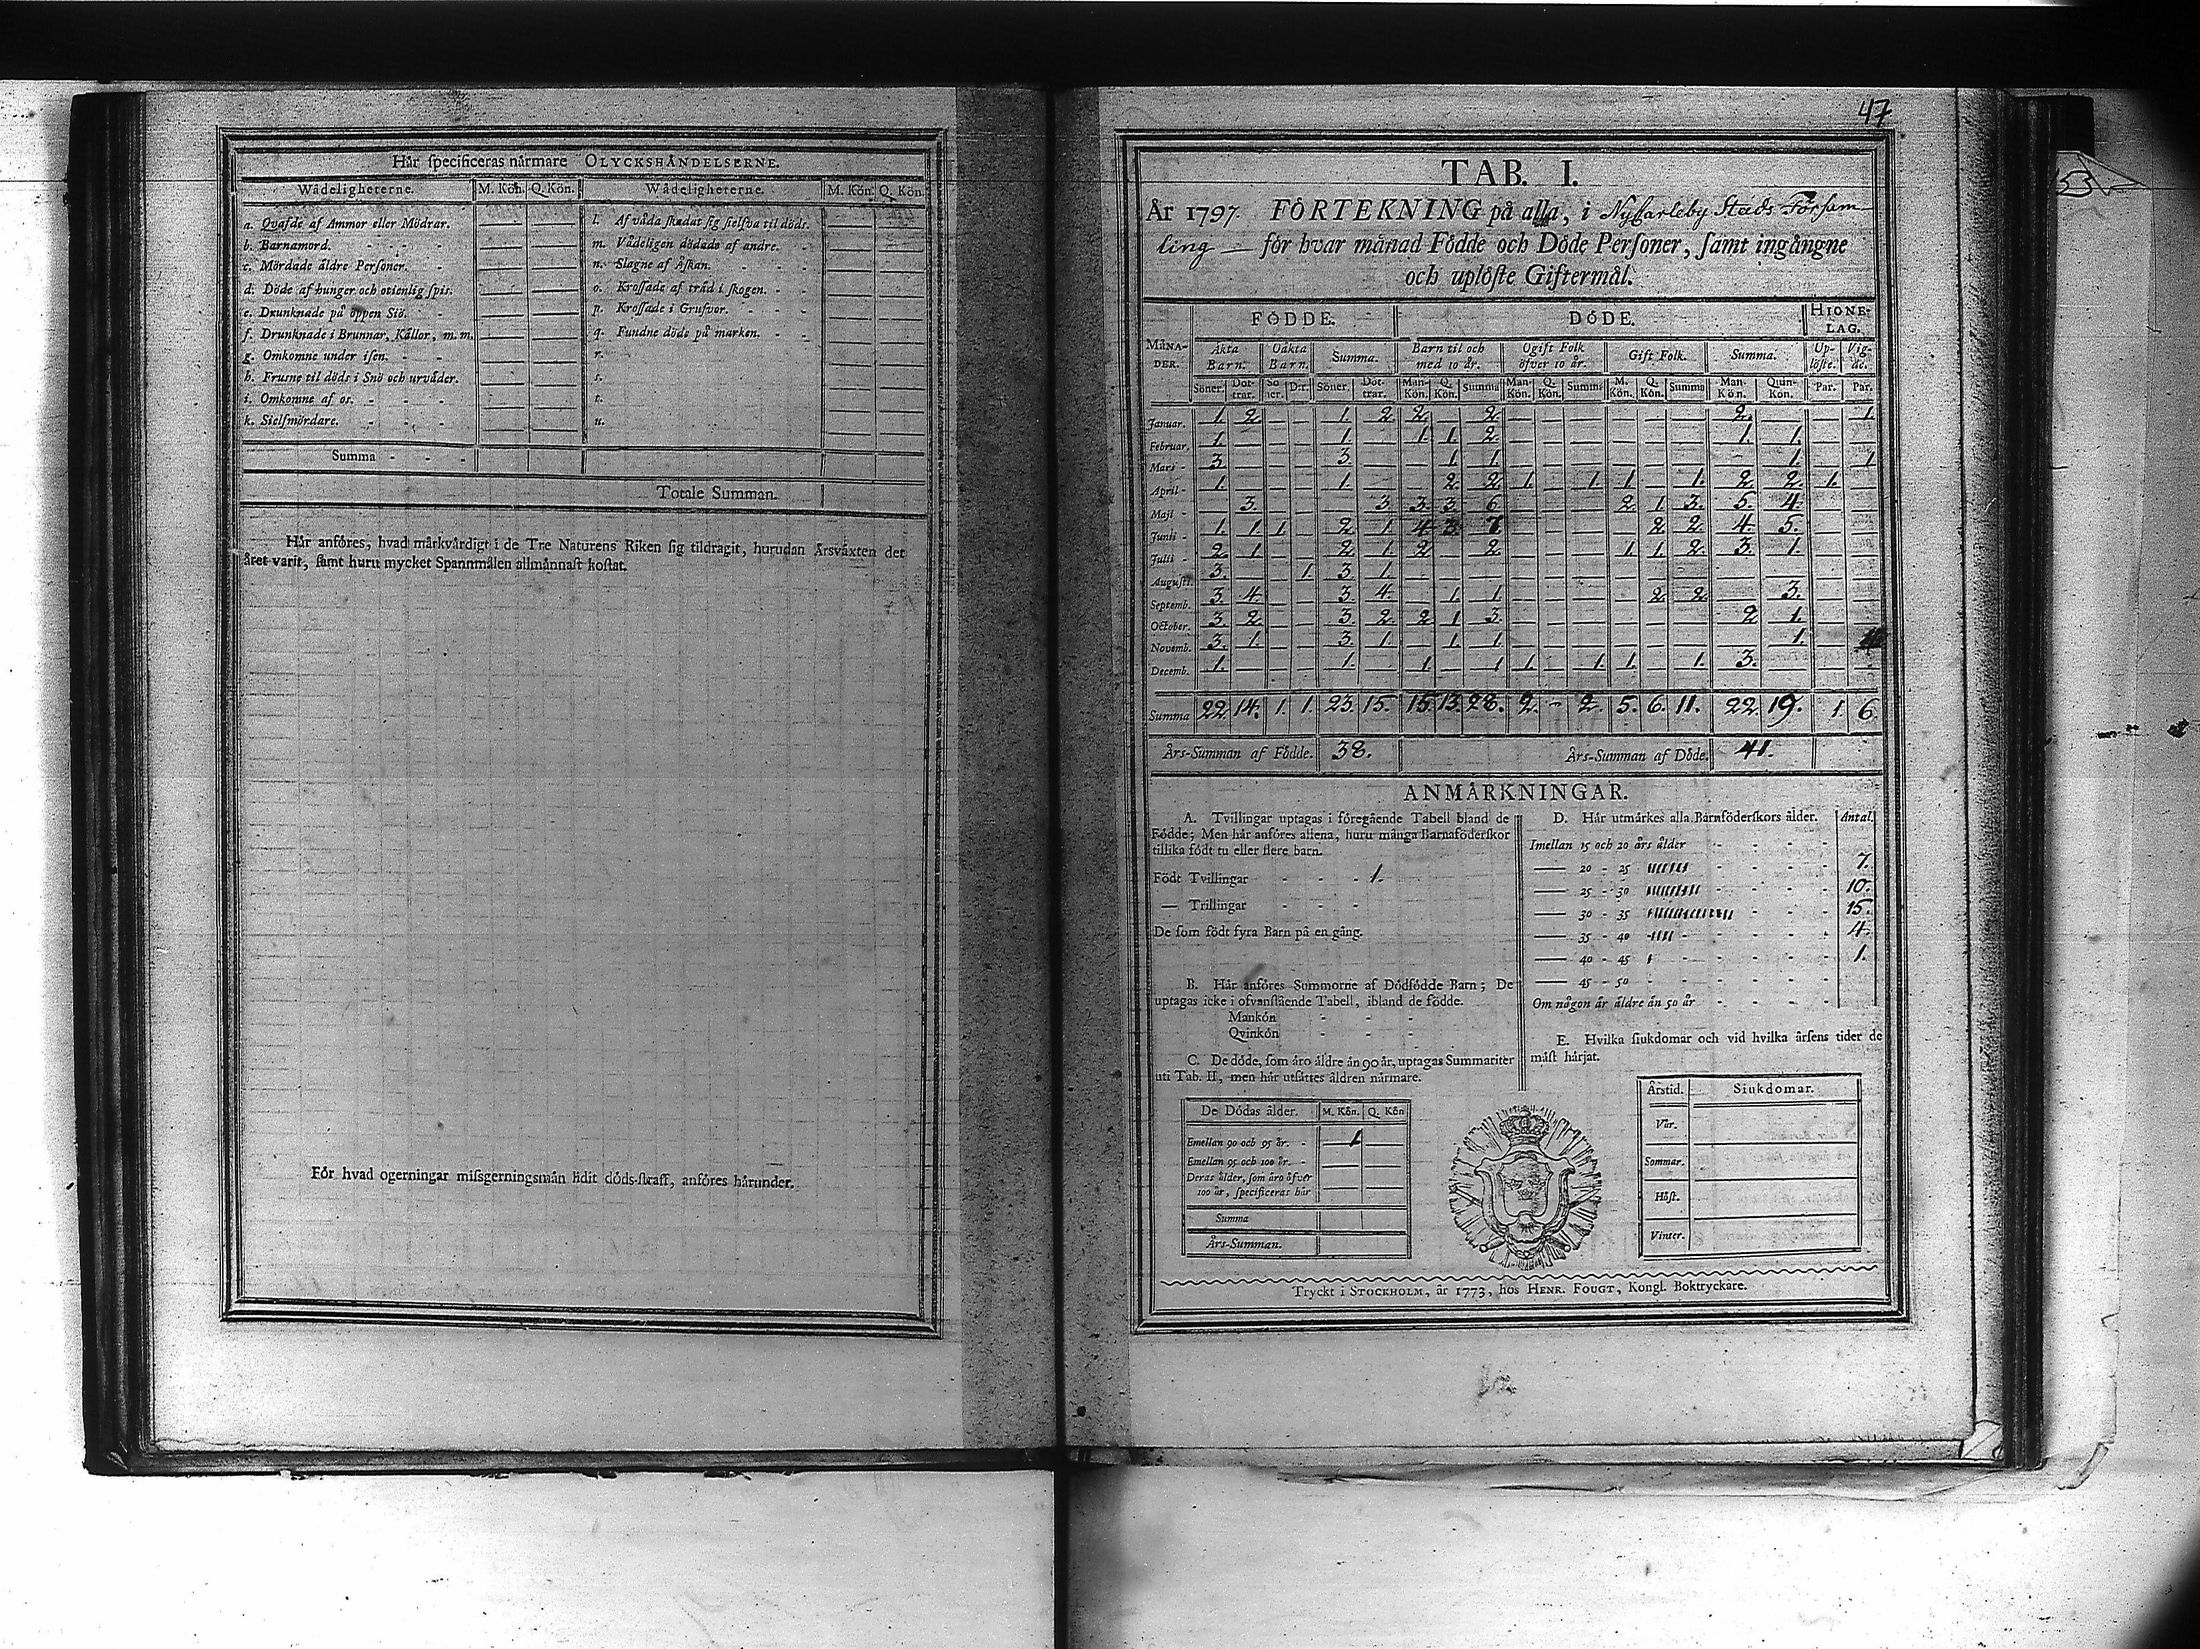 Här specificeras nårmare OLYCKSHÅNDELSERNE.
Wådeligheterne. M. Kön. Q. Kön. Wådeligheterne. M. Kön. Q. Kön.
a. Qvafde af Ammor eller Mödrar. — — l. Af våda skadat sig sielfva til döds. — —
b. Barnamord. — — m. Vådeligen dödade af andre. — —
c. Mördade åldre Personer. — — n. Slagne af Åskan. — —
d. Döde af hunger och otienlig spis. — — o. Krossade af tråd i skogen. — —
e. Drunknade på öppen Siö. — — p. Krossade i Grufvor. — —
f. Drunknade i Brunnar, Kållor, m. m. — — q. Fundne döde på marken. — —
g. Omkomne under isen. — — r. — —
h. Frusne til döds i Snö och urvåder. — — s. — —
i. Omkomne af os. — — t. — —
k. Sielfmördare. — — u. — —
Summa - - -
Totale Summan.
Hår anföres, hvad mårkvårdigt i de Tre Naturens Riken sig tildragit, hurudan Årsvåxten det
året varit, samt huru mycket Spannmålen allmånnast kostat.
För hvad ogerningar missgerningsmån lidit döds-straff, anföres hårunder.
47
53
TAB. I.
År 1797. FÖRTEKNING på alla, i Nycarleby Stads Församling
för hvar månad Födde och Döde Personer, samt ingångne
och uplöste Giftermål.
FÖDDE. DÖDE. HIONELAG.
MÅNADER. Åkta Barn. Oåkta Barn. Summa. Barn til och med 10 år. Ogift Folk öfver 10 år. Gift Folk. Summa. Uplöste. Vigde.
Söner. Dottrar. Söner. D:r. Söner. Dottrar. Man-Kön. Q. Kön. Summa Man-Kön. Q. Kön. Summa M. Kön. Q. Kön. Summa Man-Kön. Quin-Kön. Par. Par.
Januar. 1. 2. — — 1. 2. 2. — 2. — — — — — — 2. — — 1.
Februar. 1. — — — 1. — 1. 1. 2. — — — — — — 1. 1. — —
Mars - 3. — — — 3. — — 1. 1. — — — — — — — 1. — 1
April - 1. — — — 1. — — 2. 2. 1. — 1. 1. — 1. 2. 2. 1. —
Maji - — 3. — — — 3. 3. 3. 6. — — — 2. 1. 3. 5. 4. — —
Junii - 1. 1. 1. — 2. 1. 4. 3. 7. — — — — 2. 2. 4. 5. — —
Julii 2. 1. — — 2. 1. 2. — 2. — — — 1. 1. 2. 3. 1. — —
Augusti. 3. — — 1. 3. 1. — — — — — — — — — — — — —
Septemb. 3. 4. — — 3. 4. — 1. 1. — — — — 2. 2. — 3. — —
October. 3. 2. — — 3. 2. 2. 1. 3. — — — — — — 2. 1. — —
Novemb. 3. 1. — — 3. 1. — 1. 1. — — — — — — — 1. — 4
Decemb. 1. — — — 1. — 1. — 1 1. — 1. 1. — 1. 3. — — —
Summa 22. 14. 1. 1. 23. 15. 15. 13. 28. 2. - 2. 5. 6. 11. 22. 19. 1. 6
Års-Summan af Födde. 38. Års-Summan af Döde. 41.
ANMÅRKNINGAR.
A. Tvillingar uptagas i föregående Tabell bland de
Födde; Men hår anföres allena, huru många Barnaföderskor
tillika födt tu eller flere barn.
Födt Tvillingar - - - 1.
— Trillingar - - -
De som födt fyra Barn på en gång.
B. Hår anföres Summorne af Dödfödde Barn; De
uptagas icke i ofvanstående Tabell, ibland de födde.
Mankön - - -
Qvinkön - - -
C. De döde, som åro åldre ån 90 år, uptagas Summariter
uti Tab. II, men hår utsåttes åldren nårmare.
De Dödas ålder. M. Kön. Q. Kön
Emellan 90 och 95 år. - 1 —
Emellan 95 och 100 år. - — —
Deras ålder, som åro öfver
100 år, specificeras hår — —
Summa
Års-Summan.
D. Hår utmårkes alla Barnföderskors ålder. Antal.
Imellan 15 och 20 års ålder - - - -
— 20 - 25 7.
— 25 - 30 10.
— 30 - 35 15.
— 35 - 40 4.
— 40 - 45 1.
— 45 - 50 - - - -
Om någon år åldre ån 50 år - - - -
E. Hvilka siukdomar och vid hvilka årsens tider de
måst hårjat.
Årstid. Siukdomar.
Vår.
Sommar.
Höst.
Vinter.
Tryckt i STOCKHOLM, år 1773, hos HENR. FOUGT, Kongl. Boktryckare.